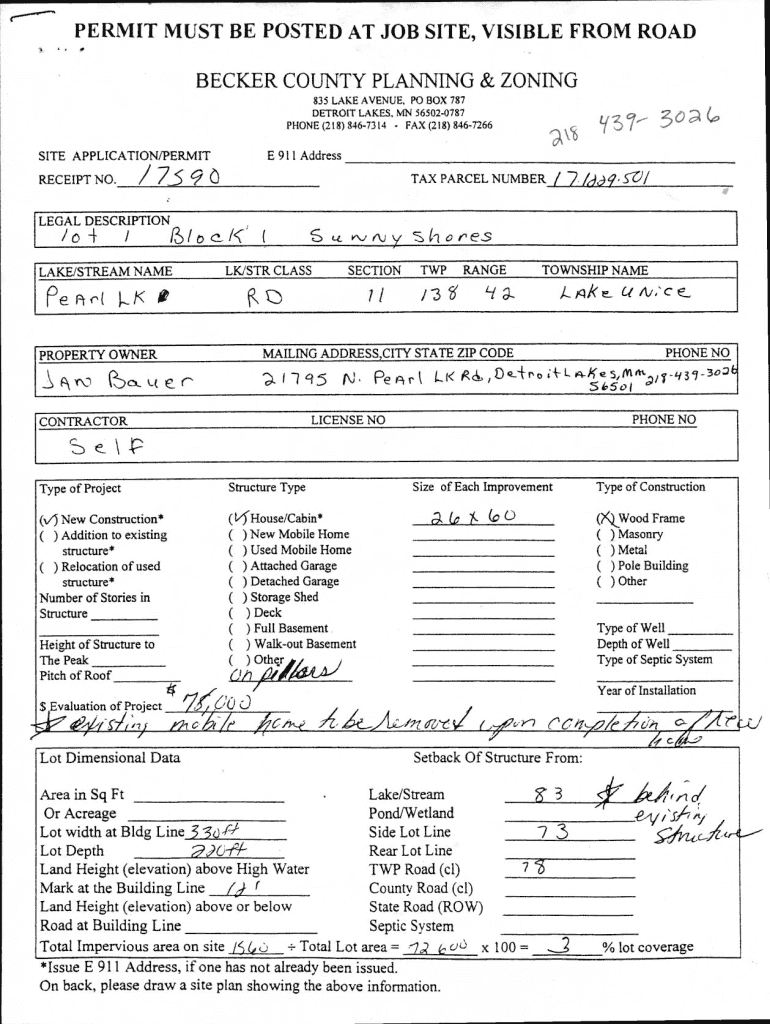 PERMIT MUST BE POSTED AT JOB SITE, VISIBLE FROM ROAD
BECKER COUNTY PLANNING & ZONING
835 LAKE AVENUE, PO BOX 787
DETROIT LAKES, MN 56502-0787
PHONE (218) 846-7314 - FAX (218) 846-7266
218 439-3026
SITE APPLICATION/PERMIT E 911 Address
RECEIPT NO. 17590 TAX PARCEL NUMBER 17.1229.501
LEGAL DESCRIPTION
lot 1 Block 1 Sunny Shores
LAKE/STREAM NAME LK/STR CLASS SECTION TWP RANGE TOWNSHIP NAME
Pearl LK RD 11 138 42 LAKe UNice
PROPERTY OWNER MAILING ADDRESS,CITY STATE ZIP CODE PHONE NO
JAN Bauer 21795 N. Pearl LK Rd, Detroit LAKes, Mn 56501 218-439-3026
CONTRACTOR LICENSE NO PHONE NO
Self
Type of Project Structure Type Size of Each Improvement Type of Construction
(✓) New Construction* (✓) House/Cabin* 26 x 60 (X) Wood Frame
( ) Addition to existing ( ) New Mobile Home ( ) Masonry
structure* ( ) Used Mobile Home ( ) Metal
( ) Relocation of used ( ) Attached Garage ( ) Pole Building
structure* ( ) Detached Garage ( ) Other
Number of Stories in ( ) Storage Shed
Structure ( ) Deck
( ) Full Basement Type of Well
Height of Structure to ( ) Walk-out Basement Depth of Well
The Peak ( ) Other on pillars Type of Septic System
Pitch of Roof
Year of Installation
$ Evaluation of Project $ 75,000
existing mobile home to be removed upon completion of new
Lot Dimensional Data Setback Of Structure From:
Area in Sq Ft Lake/Stream 83 behind
Or Acreage Pond/Wetland existing
Lot width at Bldg Line 330ft Side Lot Line 73 structure
Lot Depth 220ft Rear Lot Line
Land Height (elevation) above High Water TWP Road (cl) 78
Mark at the Building Line 12' County Road (cl)
Land Height (elevation) above or below State Road (ROW)
Road at Building Line Septic System
Total Impervious area on site 1560 ÷ Total Lot area = 72 600 x 100 = 3 % lot coverage
*Issue E 911 Address, if one has not already been issued.
On back, please draw a site plan showing the above information.